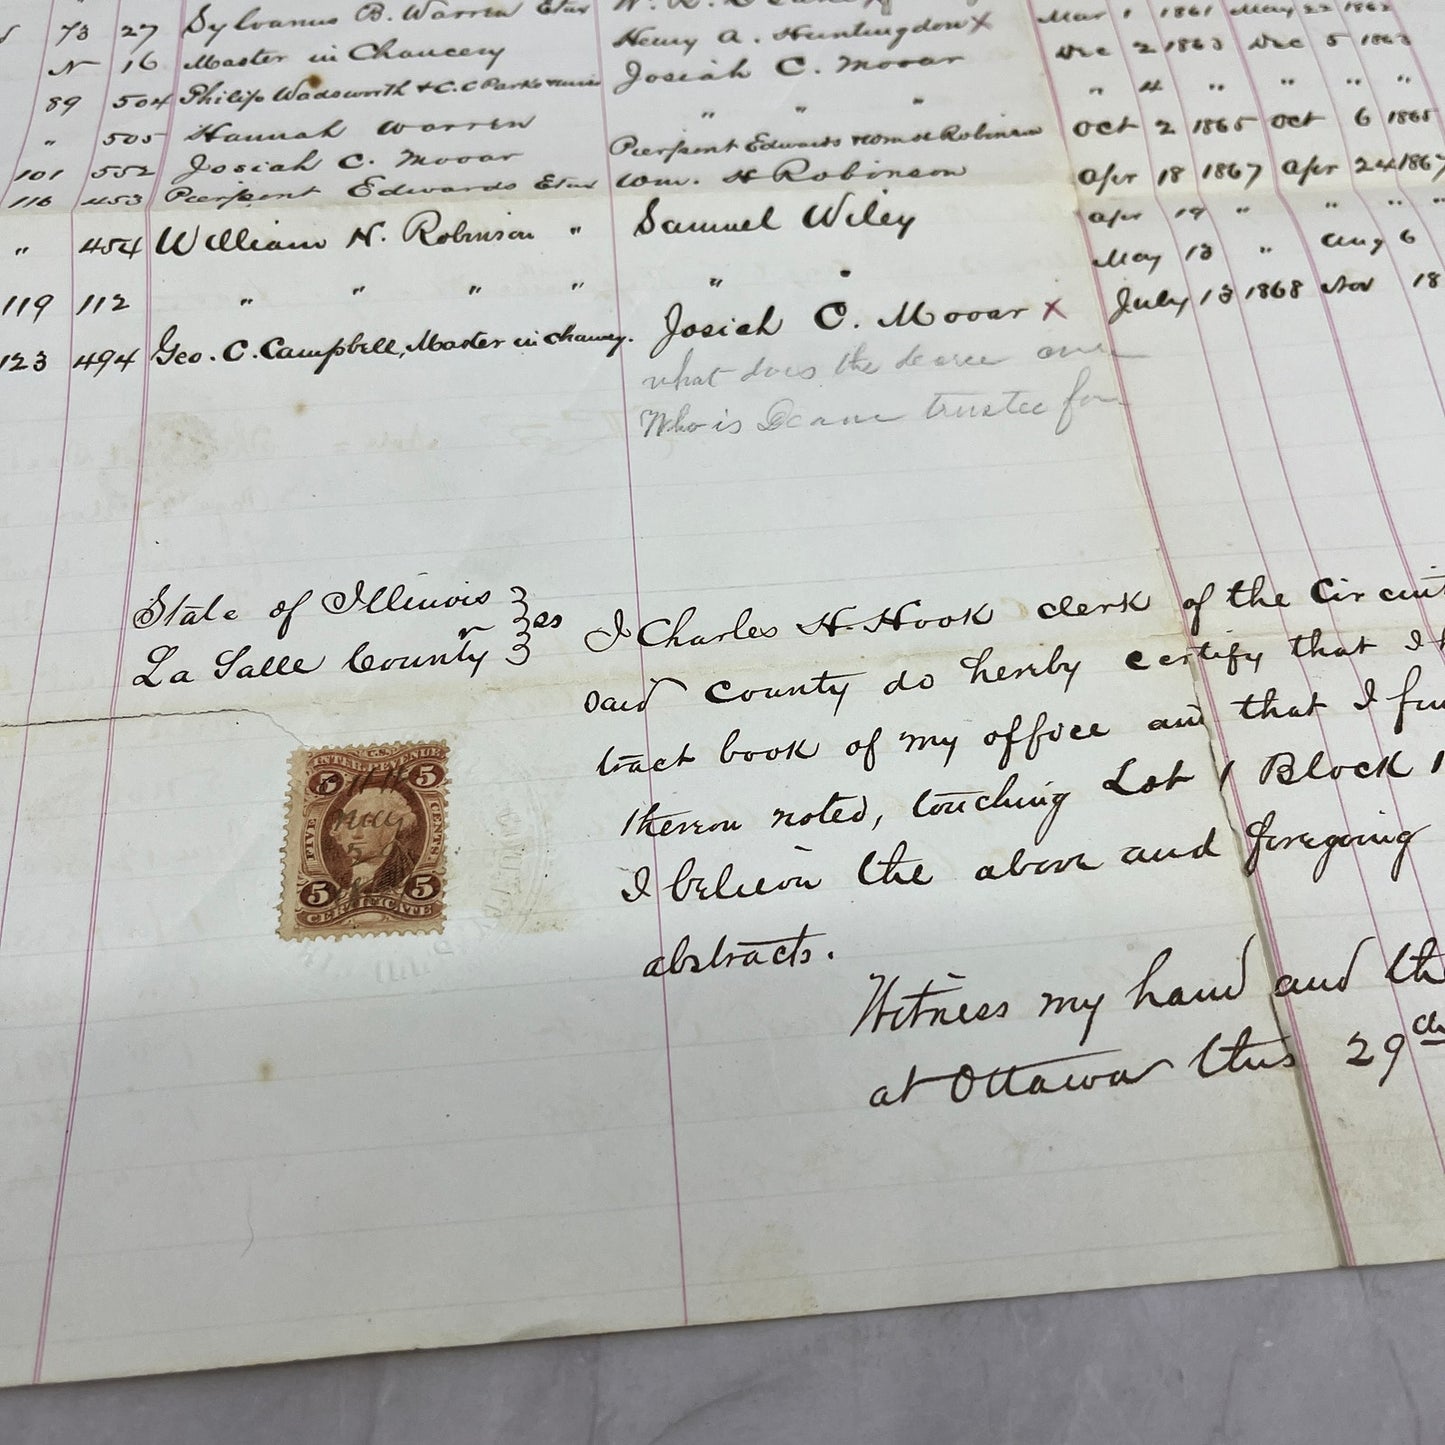 73 27 Sylvanus B. Warren Etux
N 16 Master in Chancery Henry A. Huntingdon x Mar 1 1861 May 22 1862
89 504 Philip Wadsworth & C.C Parks Josiah C. Mooar Dec 2 1863 Dec 5 1863
" 505 Hannah Warren " " " " 4 " " " "
101 552 Josiah C. Mooar Pierpent Edwards & Wm H Robinson Oct 2 1865 Oct 6 1865
116 453 Pierpent Edwards Etux Wm. H Robinson Apr 18 1867 Apr 24 1867
" 454 William H. Robinson " Samuel Wiley Apr 19 " " " "
119 112 " " " " " " May 13 " Aug 6
123 494 Geo. C. Campbell, Master in Chancey. Josiah C. Mooar x July 13 1868 Nov 18
what does the decree
Who is Deane trustee for
State of Illinois } ss
La Salle County }
I Charles H. Hook clerk of the Circuit
said County do hereby certify that I
tract book of my office and that I
thereon noted, touching Lot 1 Block 1
I believe the above and foregoing
abstracts.
Witness my hand and
at Ottawa this 29th
U.S. INTER. REVENUE
5 5
FIVE CENTS
5 5
CERTIFICATE
C H H
Aug